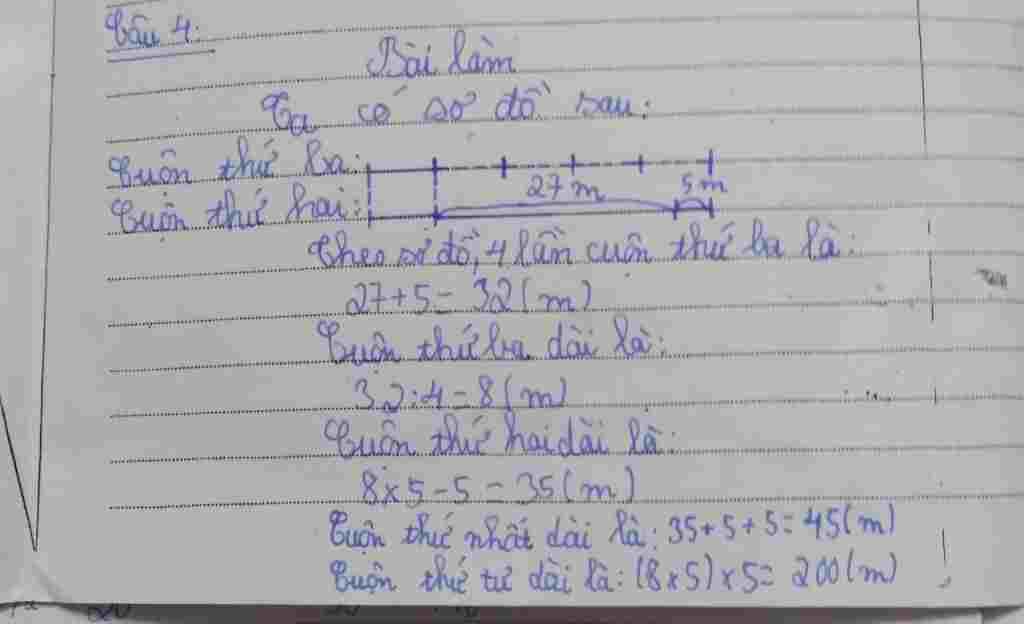 Câu 4:
Bài làm
Ta có sơ đồ sau:
Cuộn thứ ba:
27 m 5 m
Cuộn thứ hai:
Theo sơ đồ, 4 lần cuộn thứ ba là:
27 + 5 = 32 (m)
Cuộn thứ ba dài là:
32 : 4 = 8 (m)
Cuộn thứ hai dài là:
8 x 5 - 5 = 35 (m)
Cuộn thứ nhất dài là: 35 + 5 + 5 = 45 (m)
Cuộn thứ tư dài là: (8 x 5) x 5 = 200 (m)